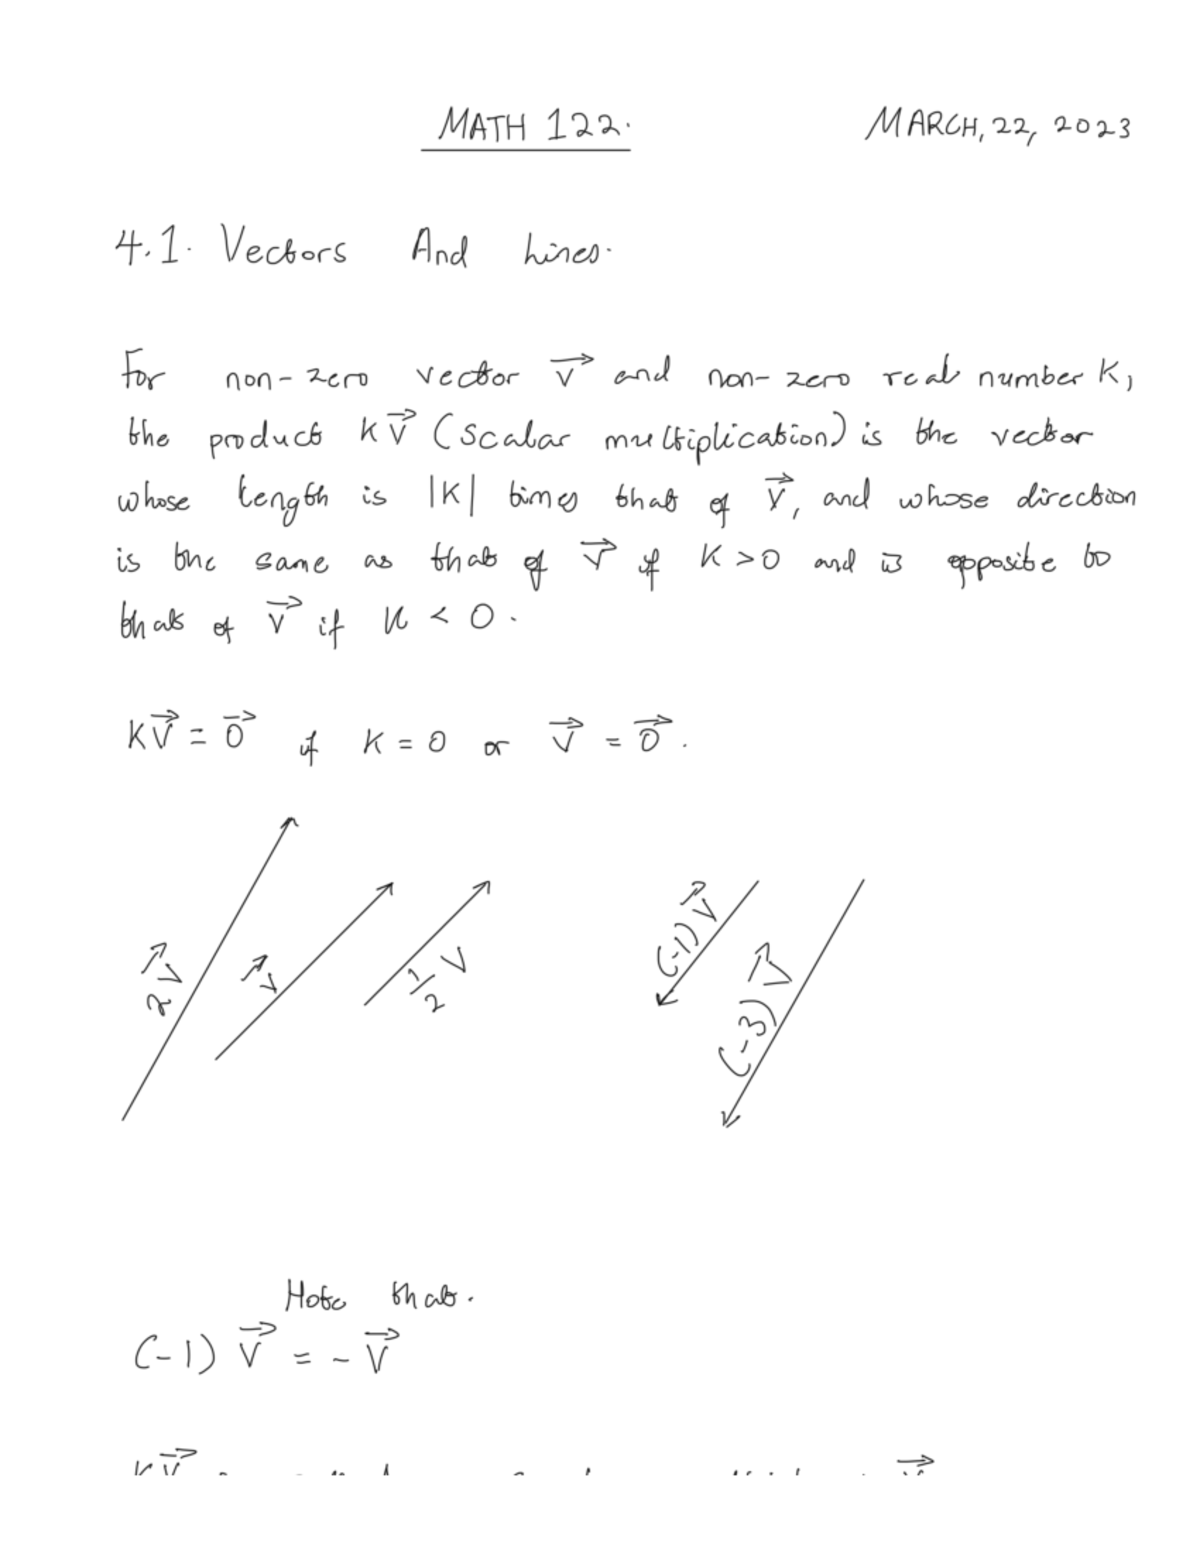 MATH 122.
MARCH, 22, 2023
4.1. Vectors And Lines.
For non-zero vector v⃗ and non-zero real number K,
the product K v⃗ (Scalar multiplication) is the vector
whose length is |K| times that of v⃗, and whose direction
is the same as that of v⃗ if K > 0 and is opposite to
that of v⃗ if K < 0.
K v⃗ = 0⃗ if K = 0 or v⃗ = 0⃗.
2 v⃗
v⃗
1/2 V
(-1) v⃗
(-3) v⃗
Note that.
(-1) v⃗ = - v⃗
K v⃗